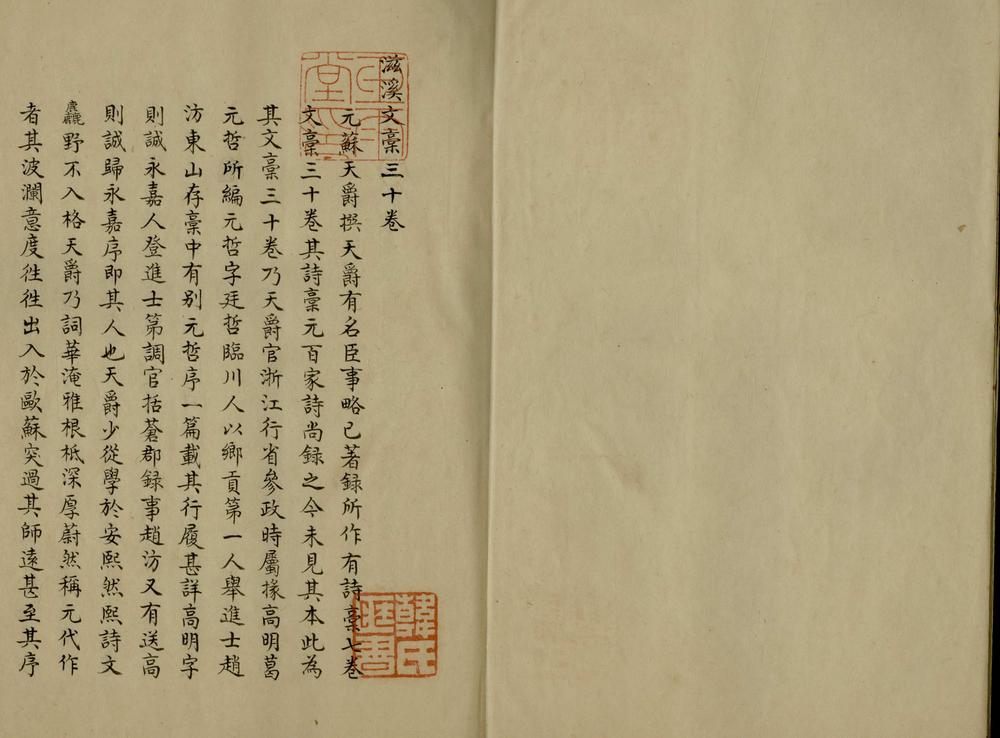 滋溪文稾三十卷
元蘇天爵撰天爵有名臣事略已著録所作有詩稾七卷
文稾三十卷其詩稾元百家詩尚録之今未見其本此為
其文稾三十卷乃天爵官浙江行省參政時屬掾高明葛
元哲所編元哲字廷哲臨川人以鄉貢第一人舉進士趙
汸東山存稾中有别元哲序一篇載其行履甚詳高明字
則誠永嘉人登進士第調官括蒼郡録事趙汸又有送高
則誠歸永嘉序即其人也天爵少從學於安熙然熙詩文
麤野不入格天爵乃詞華淹雅根柢深厚蔚然稱元代作
者其波瀾意度徃徃出入於歐蘇突過其師遠甚至其序
韓氏